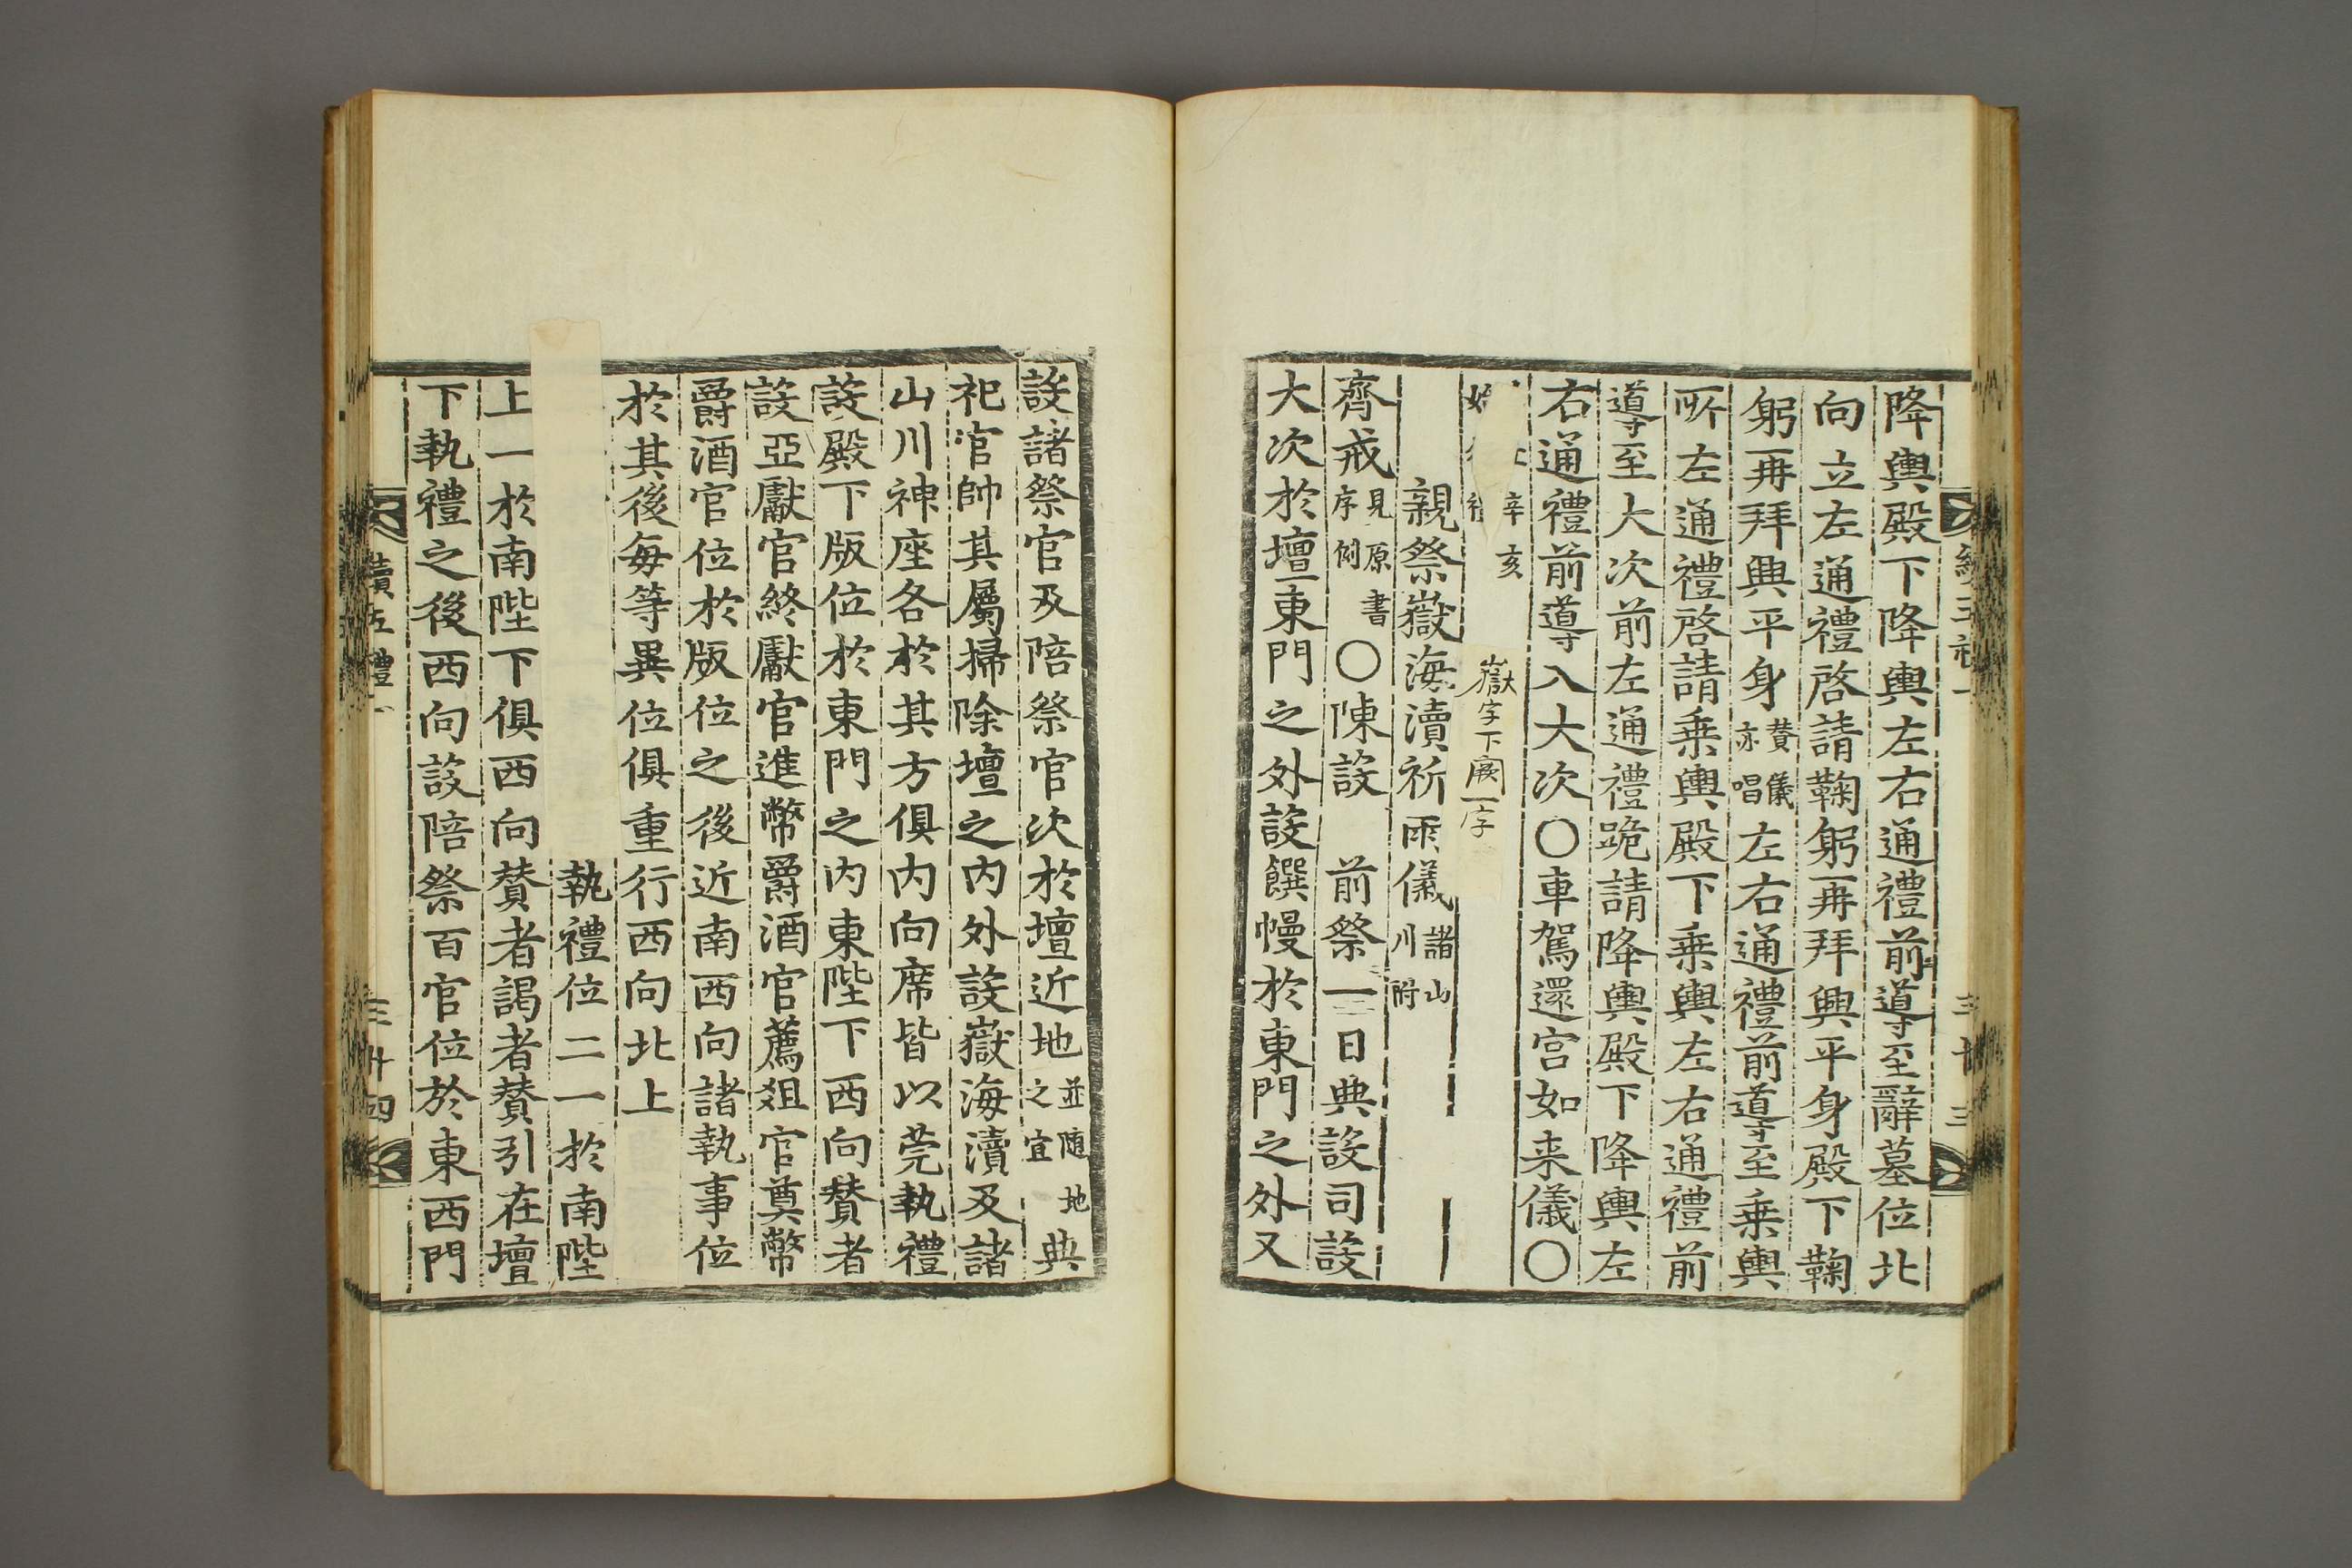 降輿殿下降輿左右通禮前導至辭墓位北
向立左通禮啓請鞠躬再拜興平身殿下鞠
躬再拜興平身贊儀亦唱左右通禮前導至乗輿
所左通禮啓請乗輿殿下乗輿左右通禮前
導至大次前左通禮跪請降輿殿下降輿左
右通禮前導入大次○車駕還宮如来儀○
辛亥
嶽字下闕一字
親祭嶽海瀆祈雨儀諸山川附
齊戒見原書序例○陳設 前祭一日典設司設
大次於壇東門之外設饌幔於東門之外又
設諸祭官及陪祭官次於壇近地並随地之宜典
祀官帥其屬掃除壇之内外設嶽海瀆及諸
山川神座各於其方俱内向席皆以莞執禮
設殿下版位於東門之内東陛下西向贊者
設亞獻官終獻官進幣爵酒官薦俎官奠幣
爵酒官位於版位之後近南西向諸執事位
於其後每等異位俱重行西向北上
執禮位二一於南陛
上一於南陛下俱西向贊者謁者贊引在壇
下執禮之後西向設陪祭百官位於東西門
續五禮
三廿四